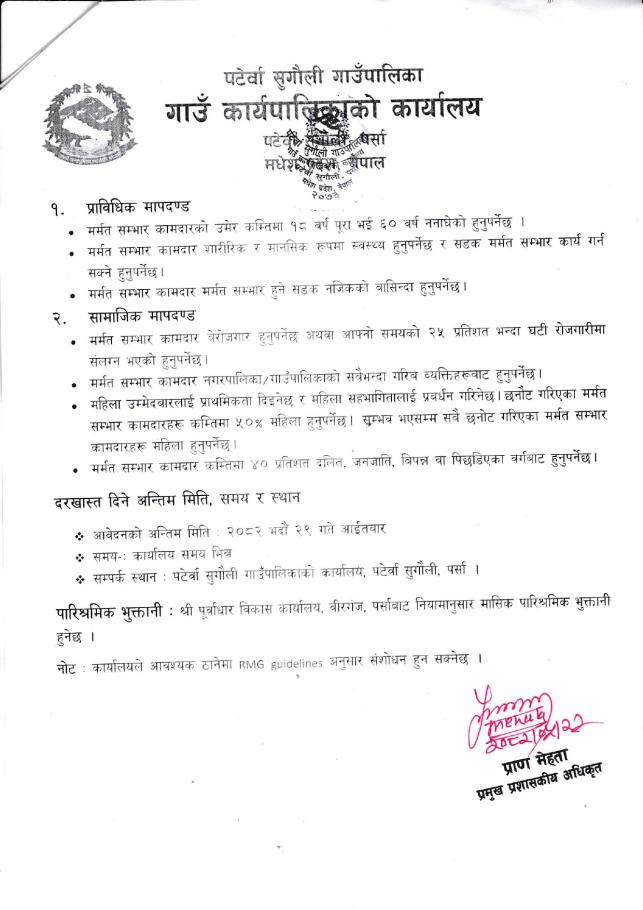 पटेर्वा सुगौली गाउँपालिका
गाउँ कार्यपालिकाको कार्यालय
पटेर्वा सुगौली पर्सा
मधेश प्रदेश, नेपाल
१. प्राविधिक मापदण्ड
• मर्मत सम्भार कामदारको उमेर कम्तिमा १८ वर्ष पूरा भई ६० वर्ष ननाघेको हुनुपर्नेछ ।
• मर्मत सम्भार कामदार शारीरिक र मानसिक रूपमा स्वस्थ्य हुनुपर्नेछ र सडक मर्मत सम्भार कार्य गर्न
सक्ने हुनुपर्नेछ।
• मर्मत सम्भार कामदार मर्मत सम्भार हुने सडक नजिकको बासिन्दा हुनुपर्नेछ।
२. सामाजिक मापदण्ड
• मर्मत सम्भार कामदार बेरोजगार हुनुपर्नेछ अथवा आफ्नो समयको २५ प्रतिशत भन्दा घटी रोजगारीमा
संलग्न भएको हुनुपर्नेछ।
• मर्मत सम्भार कामदार नगरपालिका/गाउँपालिकाको सवैभन्दा गरिब व्यक्तिहरूवाट हुनुपर्नेछ।
• महिला उम्मेदवारलाई प्राथमिकता दिइनेछ र महिला सहभागितालाई प्रवर्धन गरिनेछ। छनौट गरिएका मर्मत
सम्भार कामदारहरू कम्तिमा ५०% महिला हुनुपर्नेछ। सम्भव भएसम्म सवै छनोट गरिएका मर्मत सम्भार
कामदारहरू महिला हुनुपर्नेछ।
• मर्मत सम्भार कामदार कम्तिमा ४० प्रतिशत दलित, जनजाति, विपन्न वा पिछडिएका वर्गबाट हुनुपर्नेछ।
दरखास्त दिने अन्तिम मिति, समय र स्थान
❖ आवेदनको अन्तिम मिति : २०८२ भदौं २९ गते आईतवार
❖ समय-: कार्यालय समय भित्र
❖ सम्पर्क स्थान : पटेर्वा सुगौली गाउँपालिकाको कार्यालय, पटेर्वा सुगौली, पर्सा ।
पारिश्रमिक भुक्तानी : श्री पूर्वाधार विकास कार्यालय, वीरगंज, पर्साबाट नियामानुसार मासिक पारिश्रमिक भुक्तानी
हुनेछ ।
नोट : कार्यालयले आवश्यक ठानेमा RMG guidelines अनुसार संशोधन हुन सक्नेछ ।
प्राण मेहता
प्रमुख प्रशासकीय अधिकृत